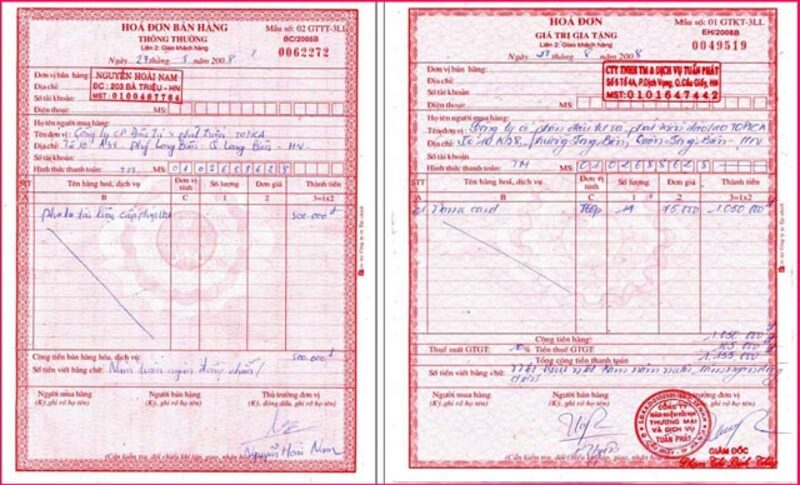 HOÁ ĐƠN BÁN HÀNG
THÔNG THƯỜNG
Liên 2: Giao khách hàng
Mẫu số: 02 GTTT-3LL
BC/2008B
0062272
Ngày 27 tháng 8 năm 2008
Đơn vị bán hàng:
NGUYỄN HOÀI NAM
ĐC : 203 BÀ TRIỆU - HN
Địa chỉ:
Số tài khoản:
Điện thoại: MS:
Họ tên người mua hàng:
Tên đơn vị: Công ty CP Đầu Tư & phát triển TOPICA
Địa chỉ: Long Biên - Q Long Biên - HN
Số tài khoản:
Hình thức thanh toán: TM MS:
STT Tên hàng hoá, dịch vụ Đơn vị tính Số lượng Đơn giá Thành tiền
A B C 1 2 3=1x2
500.000đ
Cộng tiền bán hàng hóa, dịch vụ: 500.000đ
Số tiền viết bằng chữ: Năm trăm ngàn đồng chẵn/
Người mua hàng Người bán hàng Thủ trưởng đơn vị
(Ký, ghi rõ họ tên) (Ký, ghi rõ họ tên) (Ký, đóng dấu, ghi rõ họ tên)
Nguyễn Hoài Nam
HOÁ ĐƠN
GIÁ TRỊ GIA TĂNG
Liên 2: Giao khách hàng
Mẫu số: 01 GTKT-3LL
EH/2008B
0049519
Ngày 27 tháng 8 năm 2008
Đơn vị bán hàng:
CTY TNHH TM & DỊCH VỤ TUẤN PHÁT
Số 5 Tổ 4A, P.Dịch Vọng, Q.Cầu Giấy, HN
MST: 0101647442
Địa chỉ:
Số tài khoản:
Điện thoại: MS:
Họ tên người mua hàng:
Tên đơn vị: Công ty cổ phần đầu tư và phát triển đào tạo TOPICA
Địa chỉ: Long Biên - HN
Số tài khoản:
Hình thức thanh toán: TM MS:
STT Tên hàng hoá, dịch vụ Đơn vị tính Số lượng Đơn giá Thành tiền
A B C 1 2 3=1x2
card Hộp 14 75.000 1.050.000đ
Cộng tiền hàng: 1.050.000
Thuế suất GTGT: 10% Tiền thuế GTGT: 105.000
Tổng cộng tiền thanh toán: 1.155.000
Số tiền viết bằng chữ: Một triệu một trăm năm mươi lăm ngàn đồng
Người mua hàng Người bán hàng
(Ký, ghi rõ họ tên) (Ký, ghi rõ họ tên)
CÔNG TY
TRÁCH NHIỆM HỮU HẠN
THƯƠNG MẠI
VÀ DỊCH VỤ
TUẤN PHÁT
GIÁM ĐỐC
Phạm Thị Bích Thủy